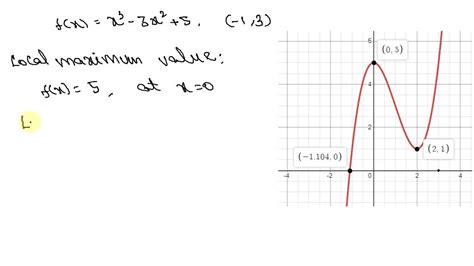 f(x) = x³ - 3x² + 5, (-1,3)
Local maximum value:
f(x) = 5, at x=0
L
(0, 5)
(2, 1)
(−1.104, 0)
6
4
2
-4
-2
0
2
4